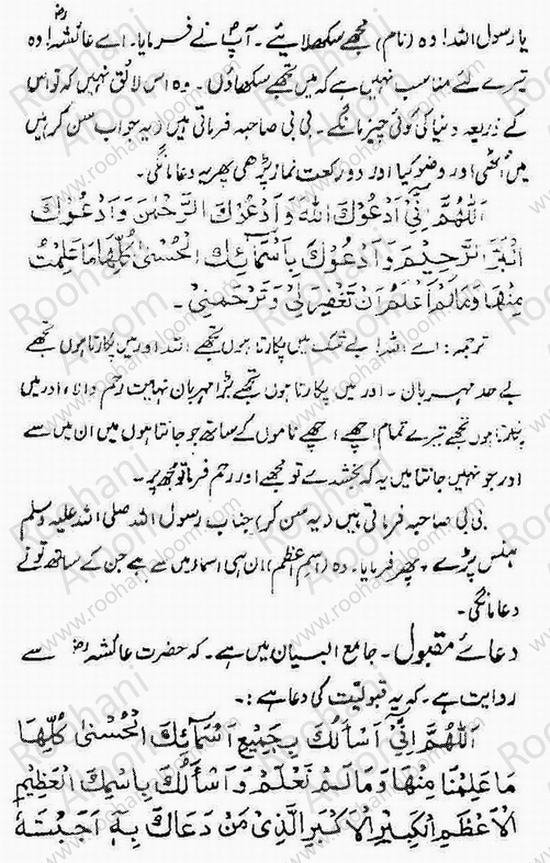 یا رسول اللہ! وہ (نام) مجھے سکھلائیے۔ آپؐ نے فرمایا۔ اے عائشہؓ! وہ
تیرے لئے مناسب نہیں ہے کہ میں تجھے سکھاؤں۔ وہ اس لائق نہیں کہ تو اس
کے ذریعہ دنیا کی کوئی چیز مانگے۔ بی بی صاحبہ فرماتی ہیں (یہ جواب سن کر) میں
میں اٹھی اور وضو کیا اور دو رکعت نماز پڑھی پھر یہ دعا مانگی۔
اَللّٰهُمَّ اِنِّیْ اَدْعُوْكَ اللّٰهَ وَاَدْعُوْكَ الرَّحْمٰنَ وَاَدْعُوْكَ
الْبَرَّ الرَّحِیْمَ وَاَدْعُوْكَ بِاَسْمَآئِكَ الْحُسْنٰی كُلِّهَا مَا عَلِمْتُ
مِنْهَا وَمَا لَمْ اَعْلَمْ اَنْ تَغْفِرَ لِیْ وَتَرْحَمَنِیْ۔
ترجمہ: اے اللہ! بے شک میں پکارتا ہوں تجھے اللہ اور میں پکارتا ہوں تجھے
بے حد مہربان۔ اور میں پکارتا ہوں تجھے بڑا مہربان نہایت رحم والا، اور میں
پکارتا ہوں تجھے تیرے تمام اچھے اچھے ناموں کے ساتھ جو جانتا ہوں میں ان میں سے
اور جو نہیں جانتا میں یہ کہ بخشدے تو مجھے اور رحم فرما تو مجھ پر۔
بی بی صاحبہ فرماتی ہیں (یہ سن کر) جناب رسول اللہ صلی اللہ علیہ وسلم
ہنس پڑے۔ پھر فرمایا۔ وہ (اسم اعظم) ان ہی اسماء میں سے ہے جن کے ساتھ تو نے
دعا مانگی۔
دعائے مقبول۔ جامع البیان میں ہے۔ کہ حضرت عائشہؓ سے
روایت ہے۔ کہ یہ قبولیت کی دعا ہے:۔
اَللّٰهُمَّ اِنِّیْ اَسْاَلُكَ بِجَمِیْعِ اَسْمَآئِكَ الْحُسْنٰی كُلِّهَا
مَا عَلِمْنَا مِنْهَا وَمَا لَمْ نَعْلَمْ وَاَسْاَلُكَ بِاسْمِكَ الْعَظِیْمِ
الْاَعْظَمِ الْكَبِیْرِ الْاَكْبَرِ الَّذِیْ مَنْ دَعَاكَ بِهٖ اَجَبْتَهٗ
Roohani Aloom
www.roohanialoom.com